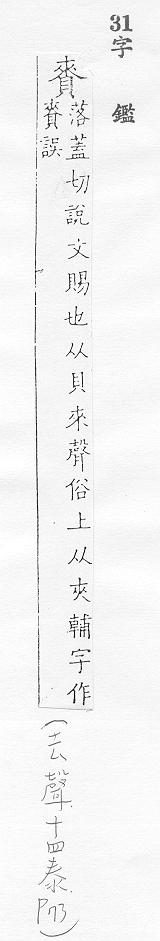 31字鑑
賚
落蓋切說文賜也从貝來聲俗上从夾輔字作
賚誤
(去聲.十四泰.P73)